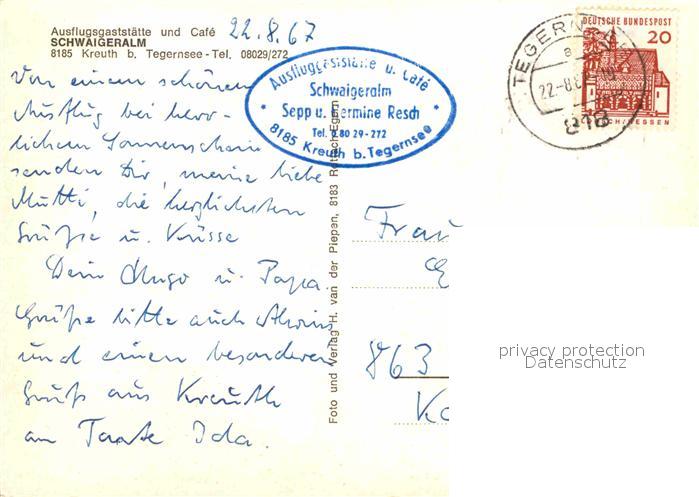 Ausflugsgaststätte und Café
SCHWAIGERALM
8185 Kreuth b. Tegernsee - Tel. 08029/272
22.8.67
Von einem schönen
Ausflug bei herr-
lichem Sonnenschein
senden Dir, meine liebe
Mutti, die herzlichsten
Grüße u. Küsse
Dein Hugo u. Papa.
Grüße bitte auch
und einen besonderen
Gruß aus Kreuth
an Tante Ida.
Ausfluggaststätte u. Café
Schwaigeralm
Sepp u. Hermine Resch
Tel. 0 80 29-272
8185 Kreuth b. Tegernsee
Foto und Verlag H. van der Piepen, 8183 Rottach-Egern
DEUTSCHE BUNDESPOST
20
TEGERNSEE
22.-8.67
818
Frau
863
privacy protection
Datenschutz